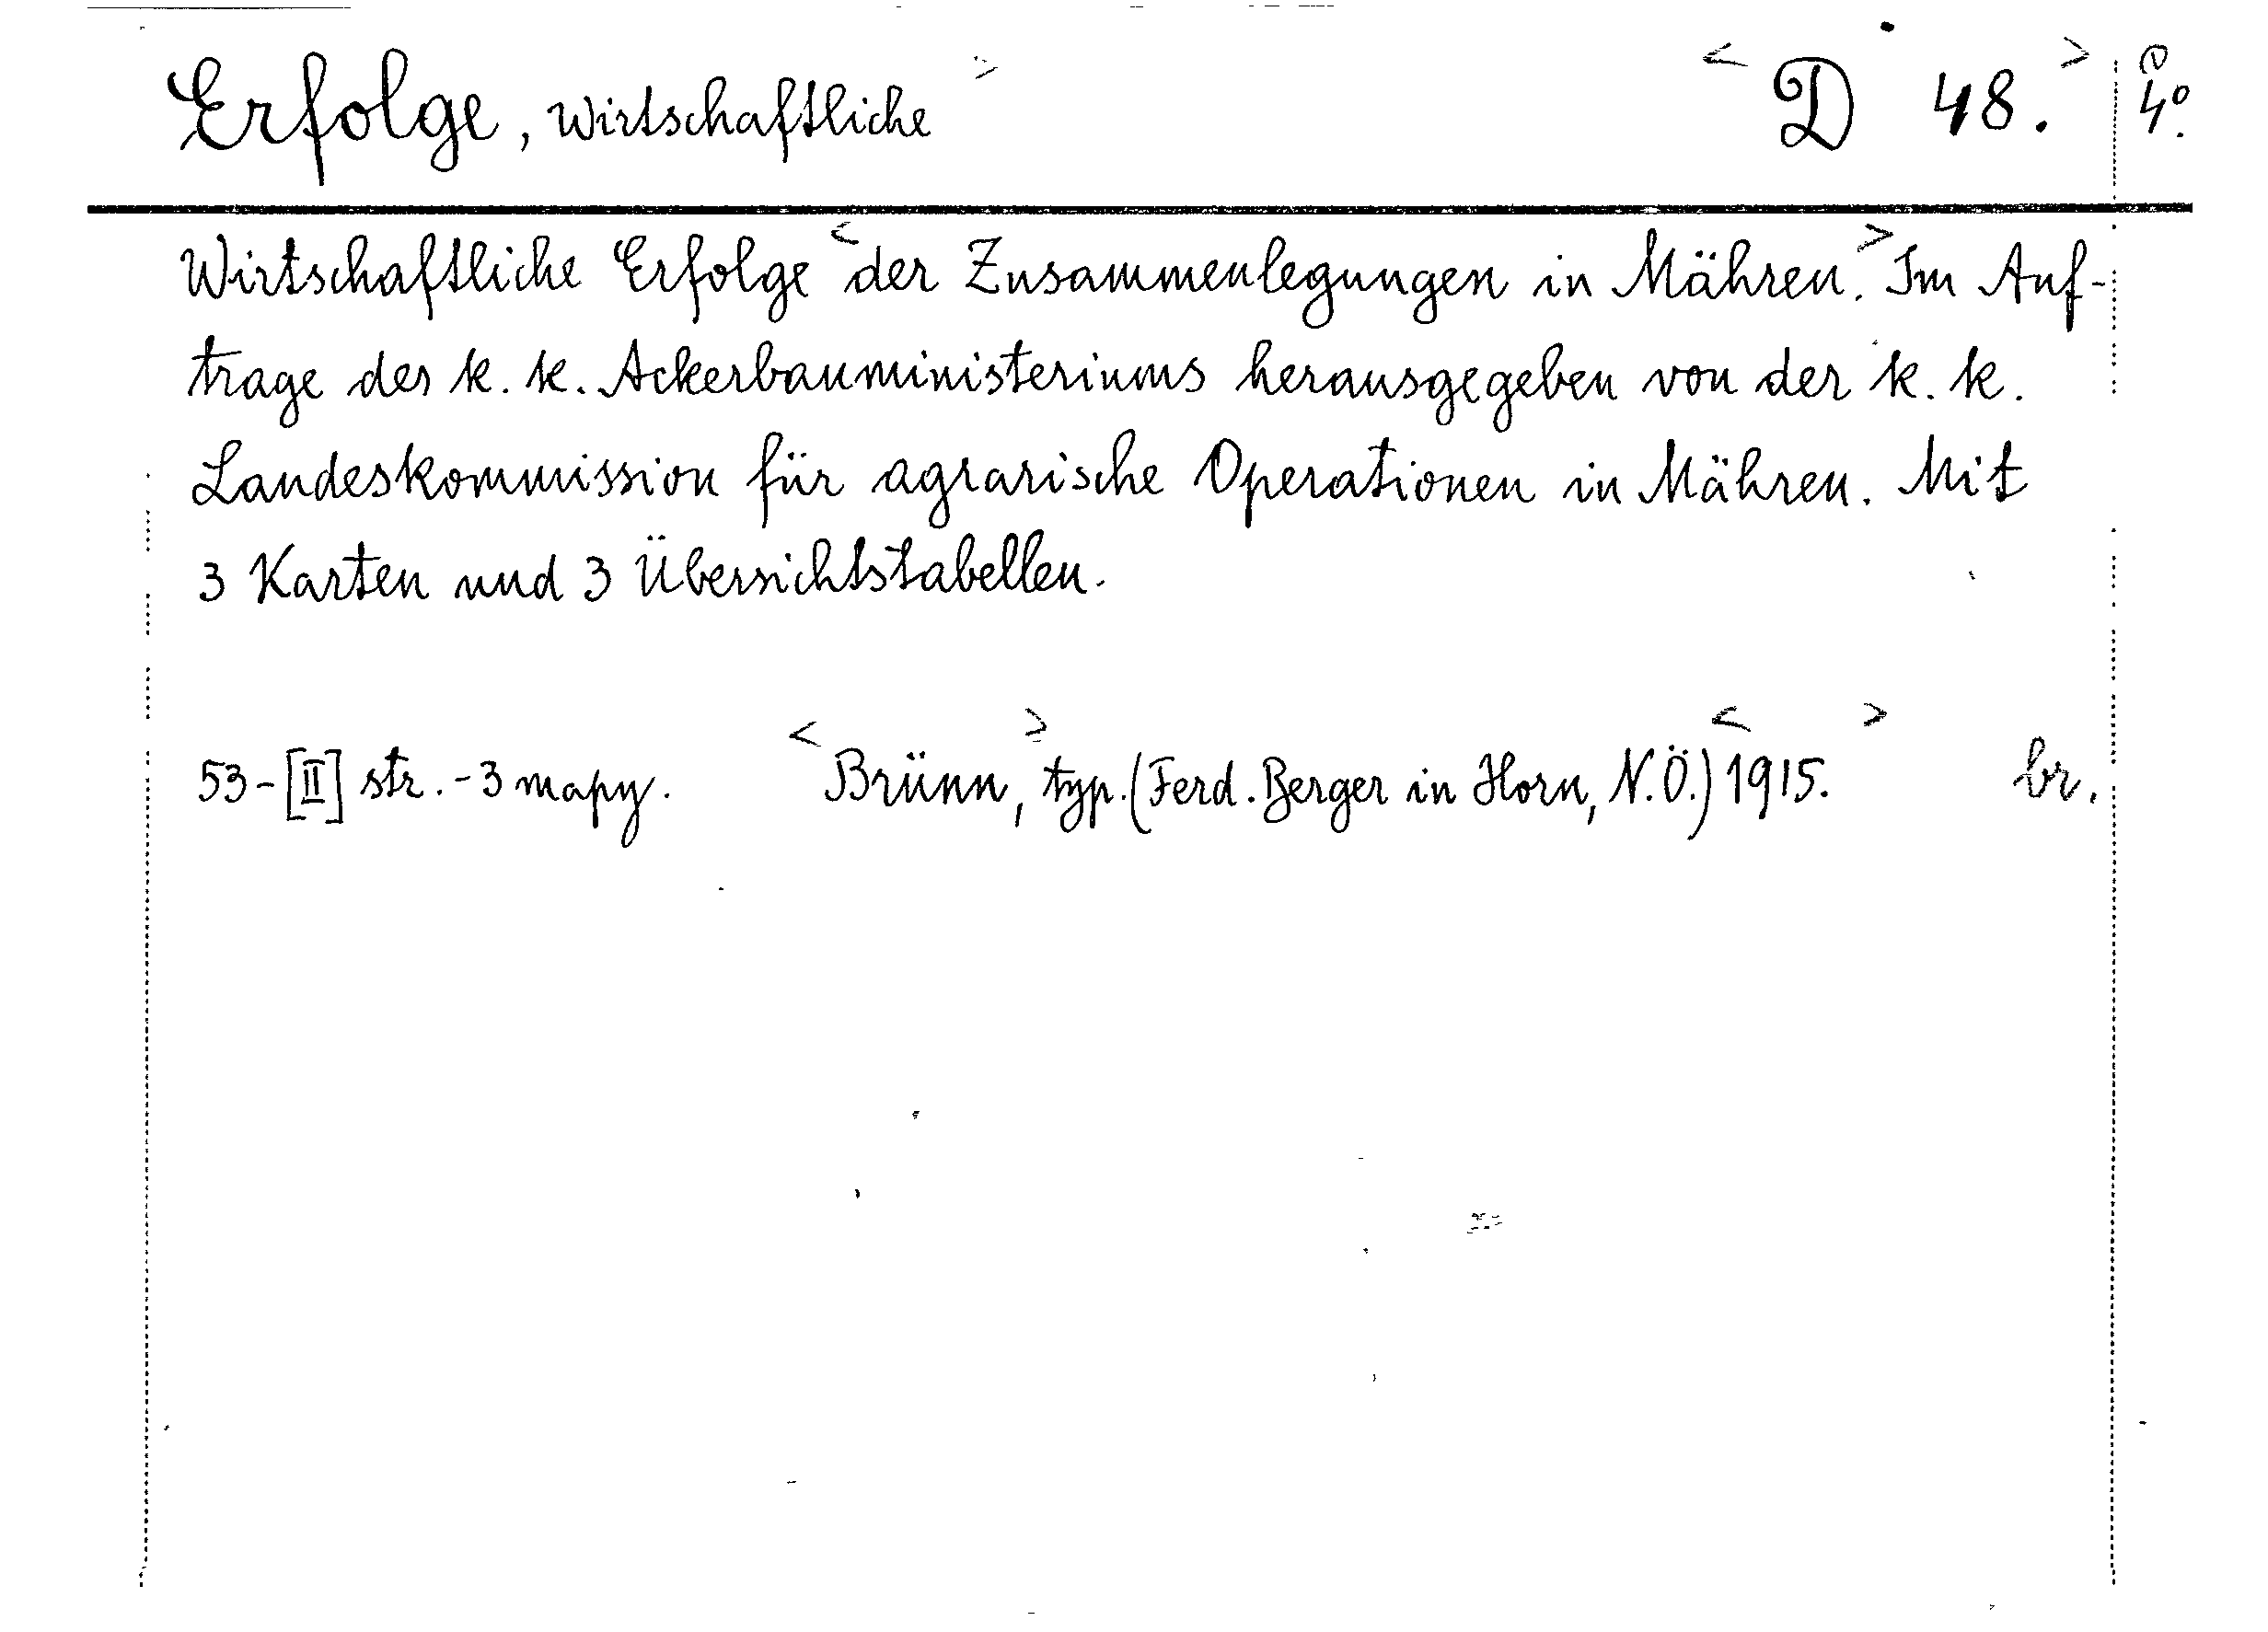 Erfolge, Wirtschaftliche > < D 48. > 4º.
Wirtschaftliche Erfolge < der Zusammenlegungen in Mähren. > Im Auf-
trage des k. k. Ackerbauministeriums herausgegeben von der k. k.
Landeskommission für agrarische Operationen in Mähren. Mit
3 Karten und 3 Übersichtstabellen.
53-[II] str. - 3 mapy. < Brünn, > typ. (Ferd. Berger in Horn, N.Ö.) < 1915. > br.